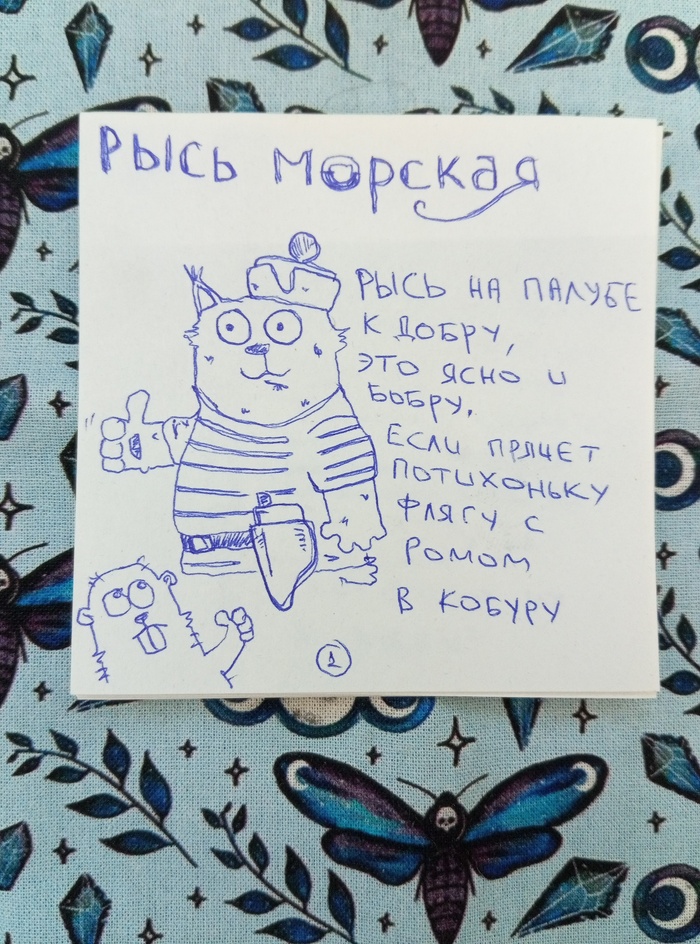 РЫСЬ МОРСКАЯ
РЫСЬ НА ПАЛУБЕ
К ДОБРУ,
ЭТО ЯСНО И
БОБРУ.
ЕСЛИ ПРЯЧЕТ
ПОТИХОНЬКУ
ФЛЯГУ С
РОМОМ
В КОБУРУ
1